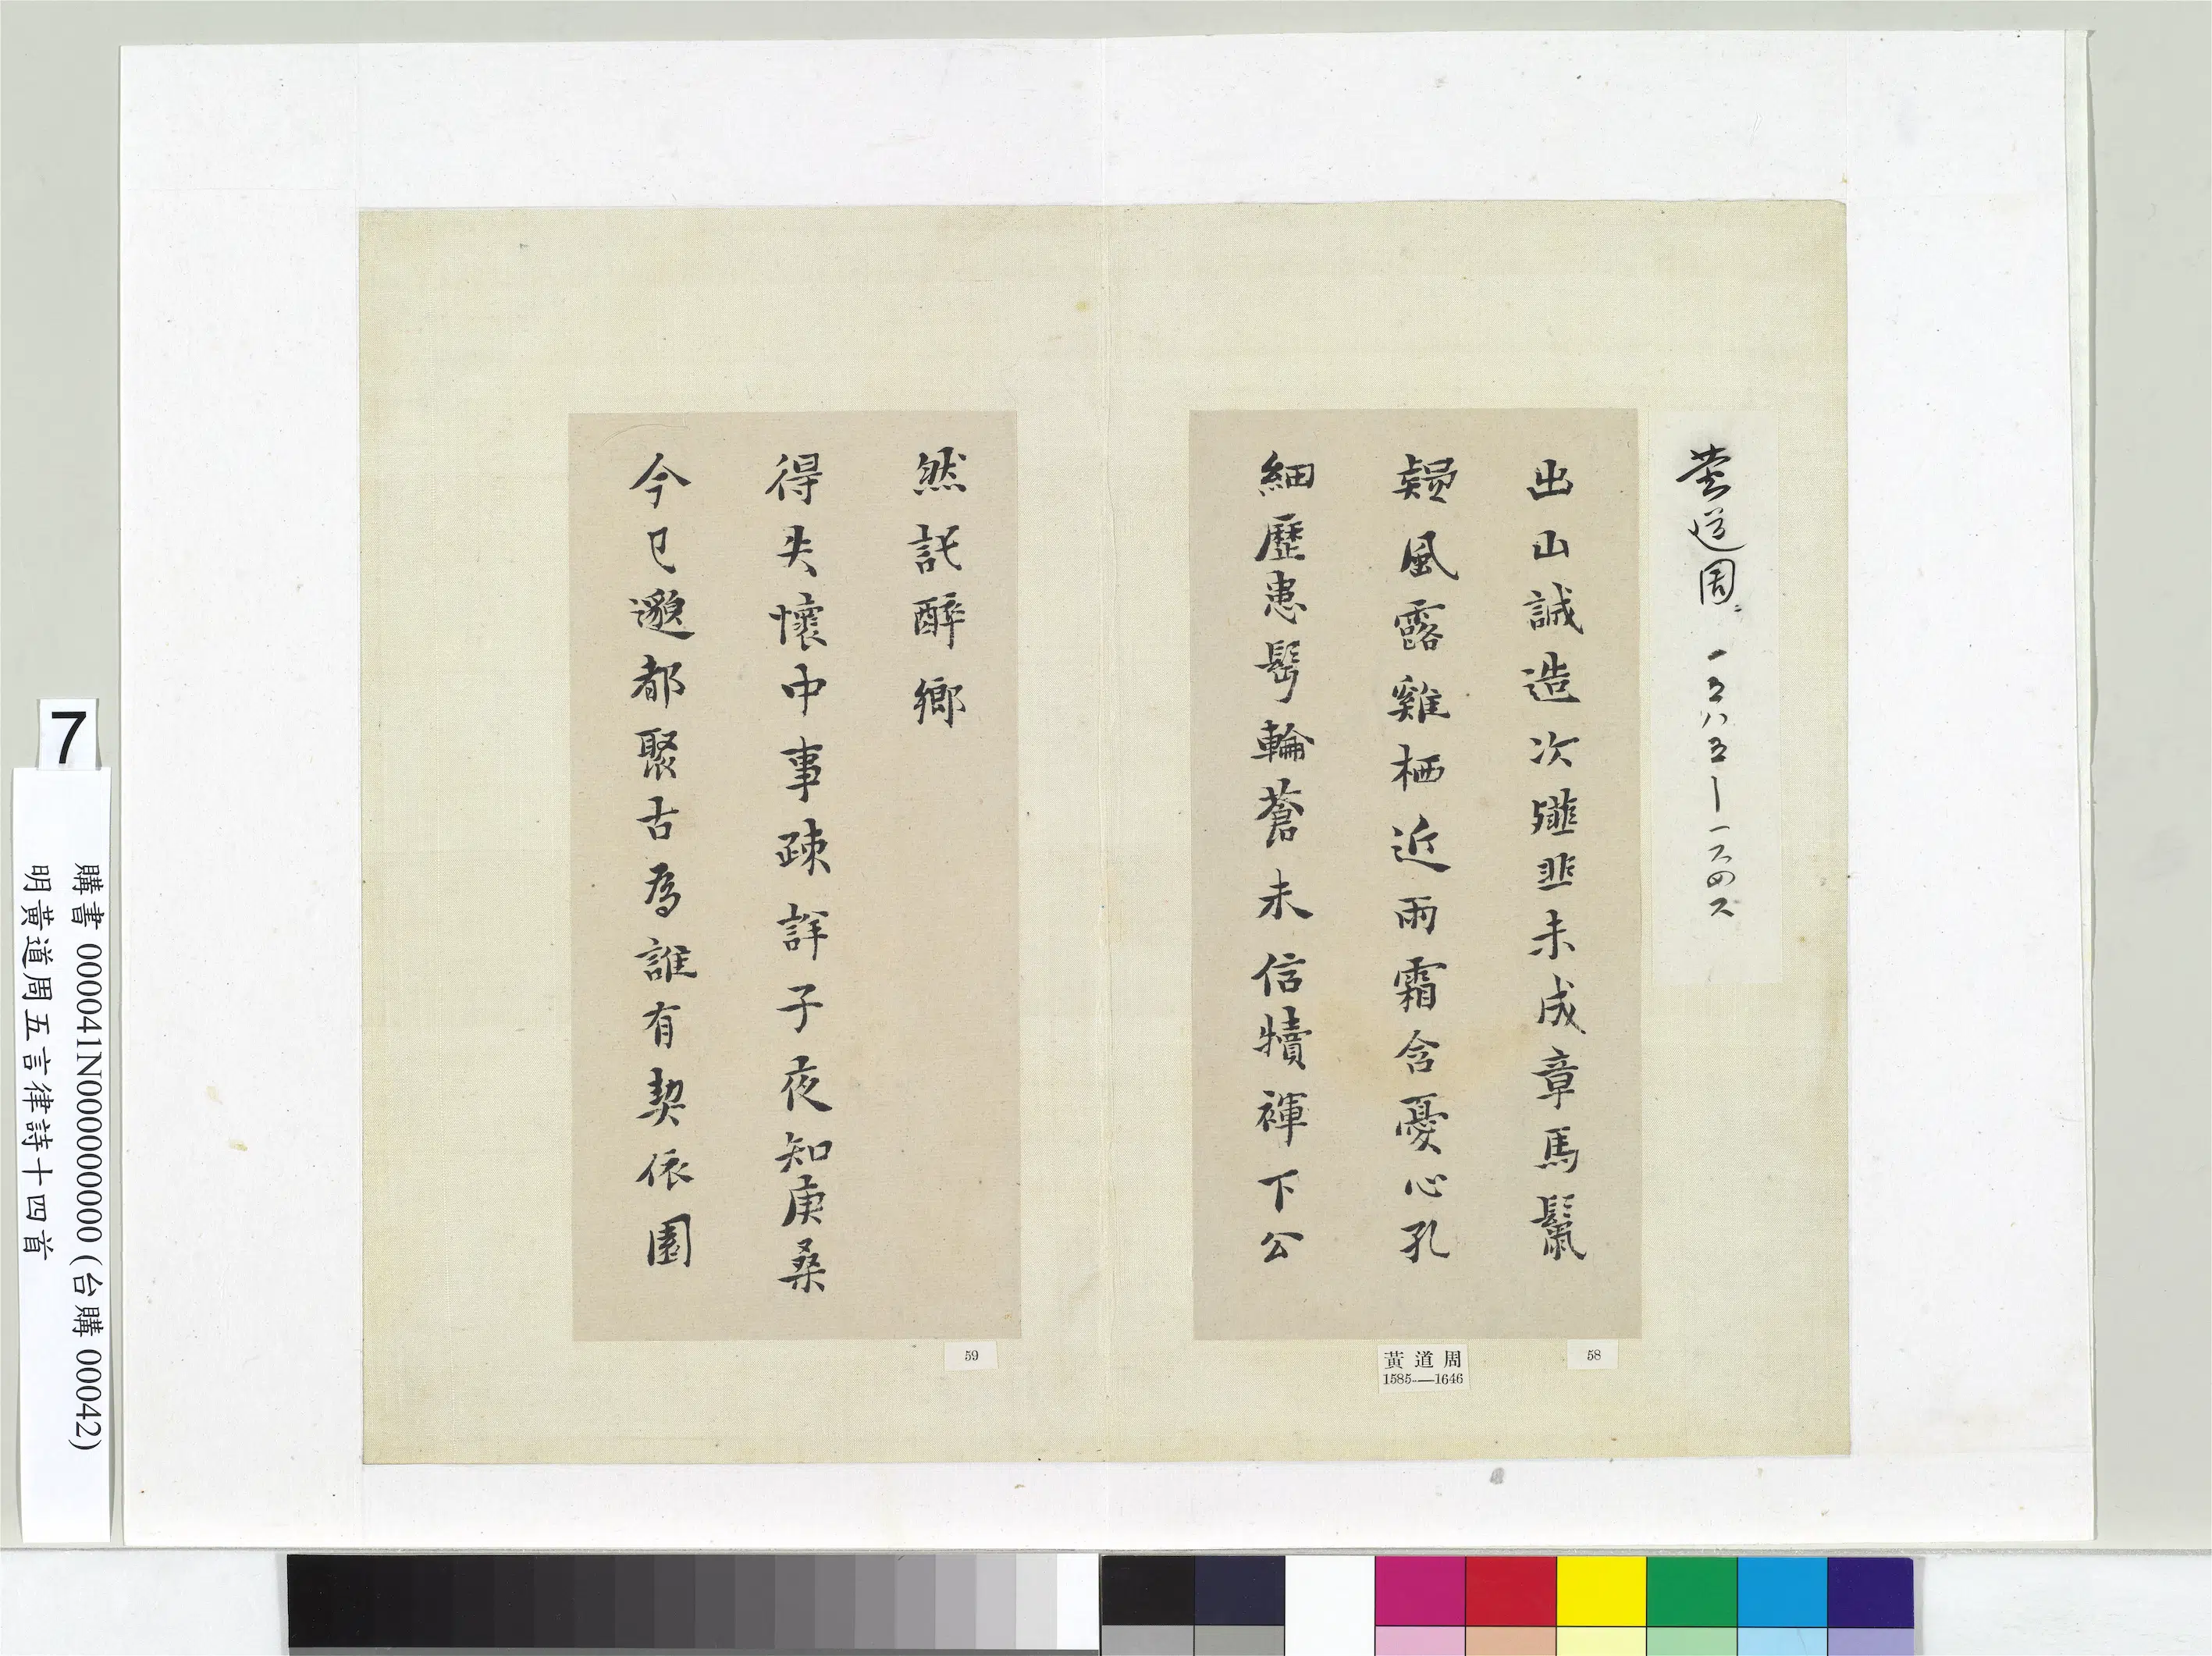 黃道周 一五八五—一六四六
出山誠造次韰韭未成章馬鬣
疑風露雞栖近雨霜含憂心孔
細歷患髩輪蒼未信犢褌下公
然託醉鄉
得失懷中事疎詳子夜知庚桑
今已邈都聚古為誰有契依園
58
黃道周
1585—1646
59
7
購書 000041N000000000 (台購 00042)
明黃道周五言律詩十四首